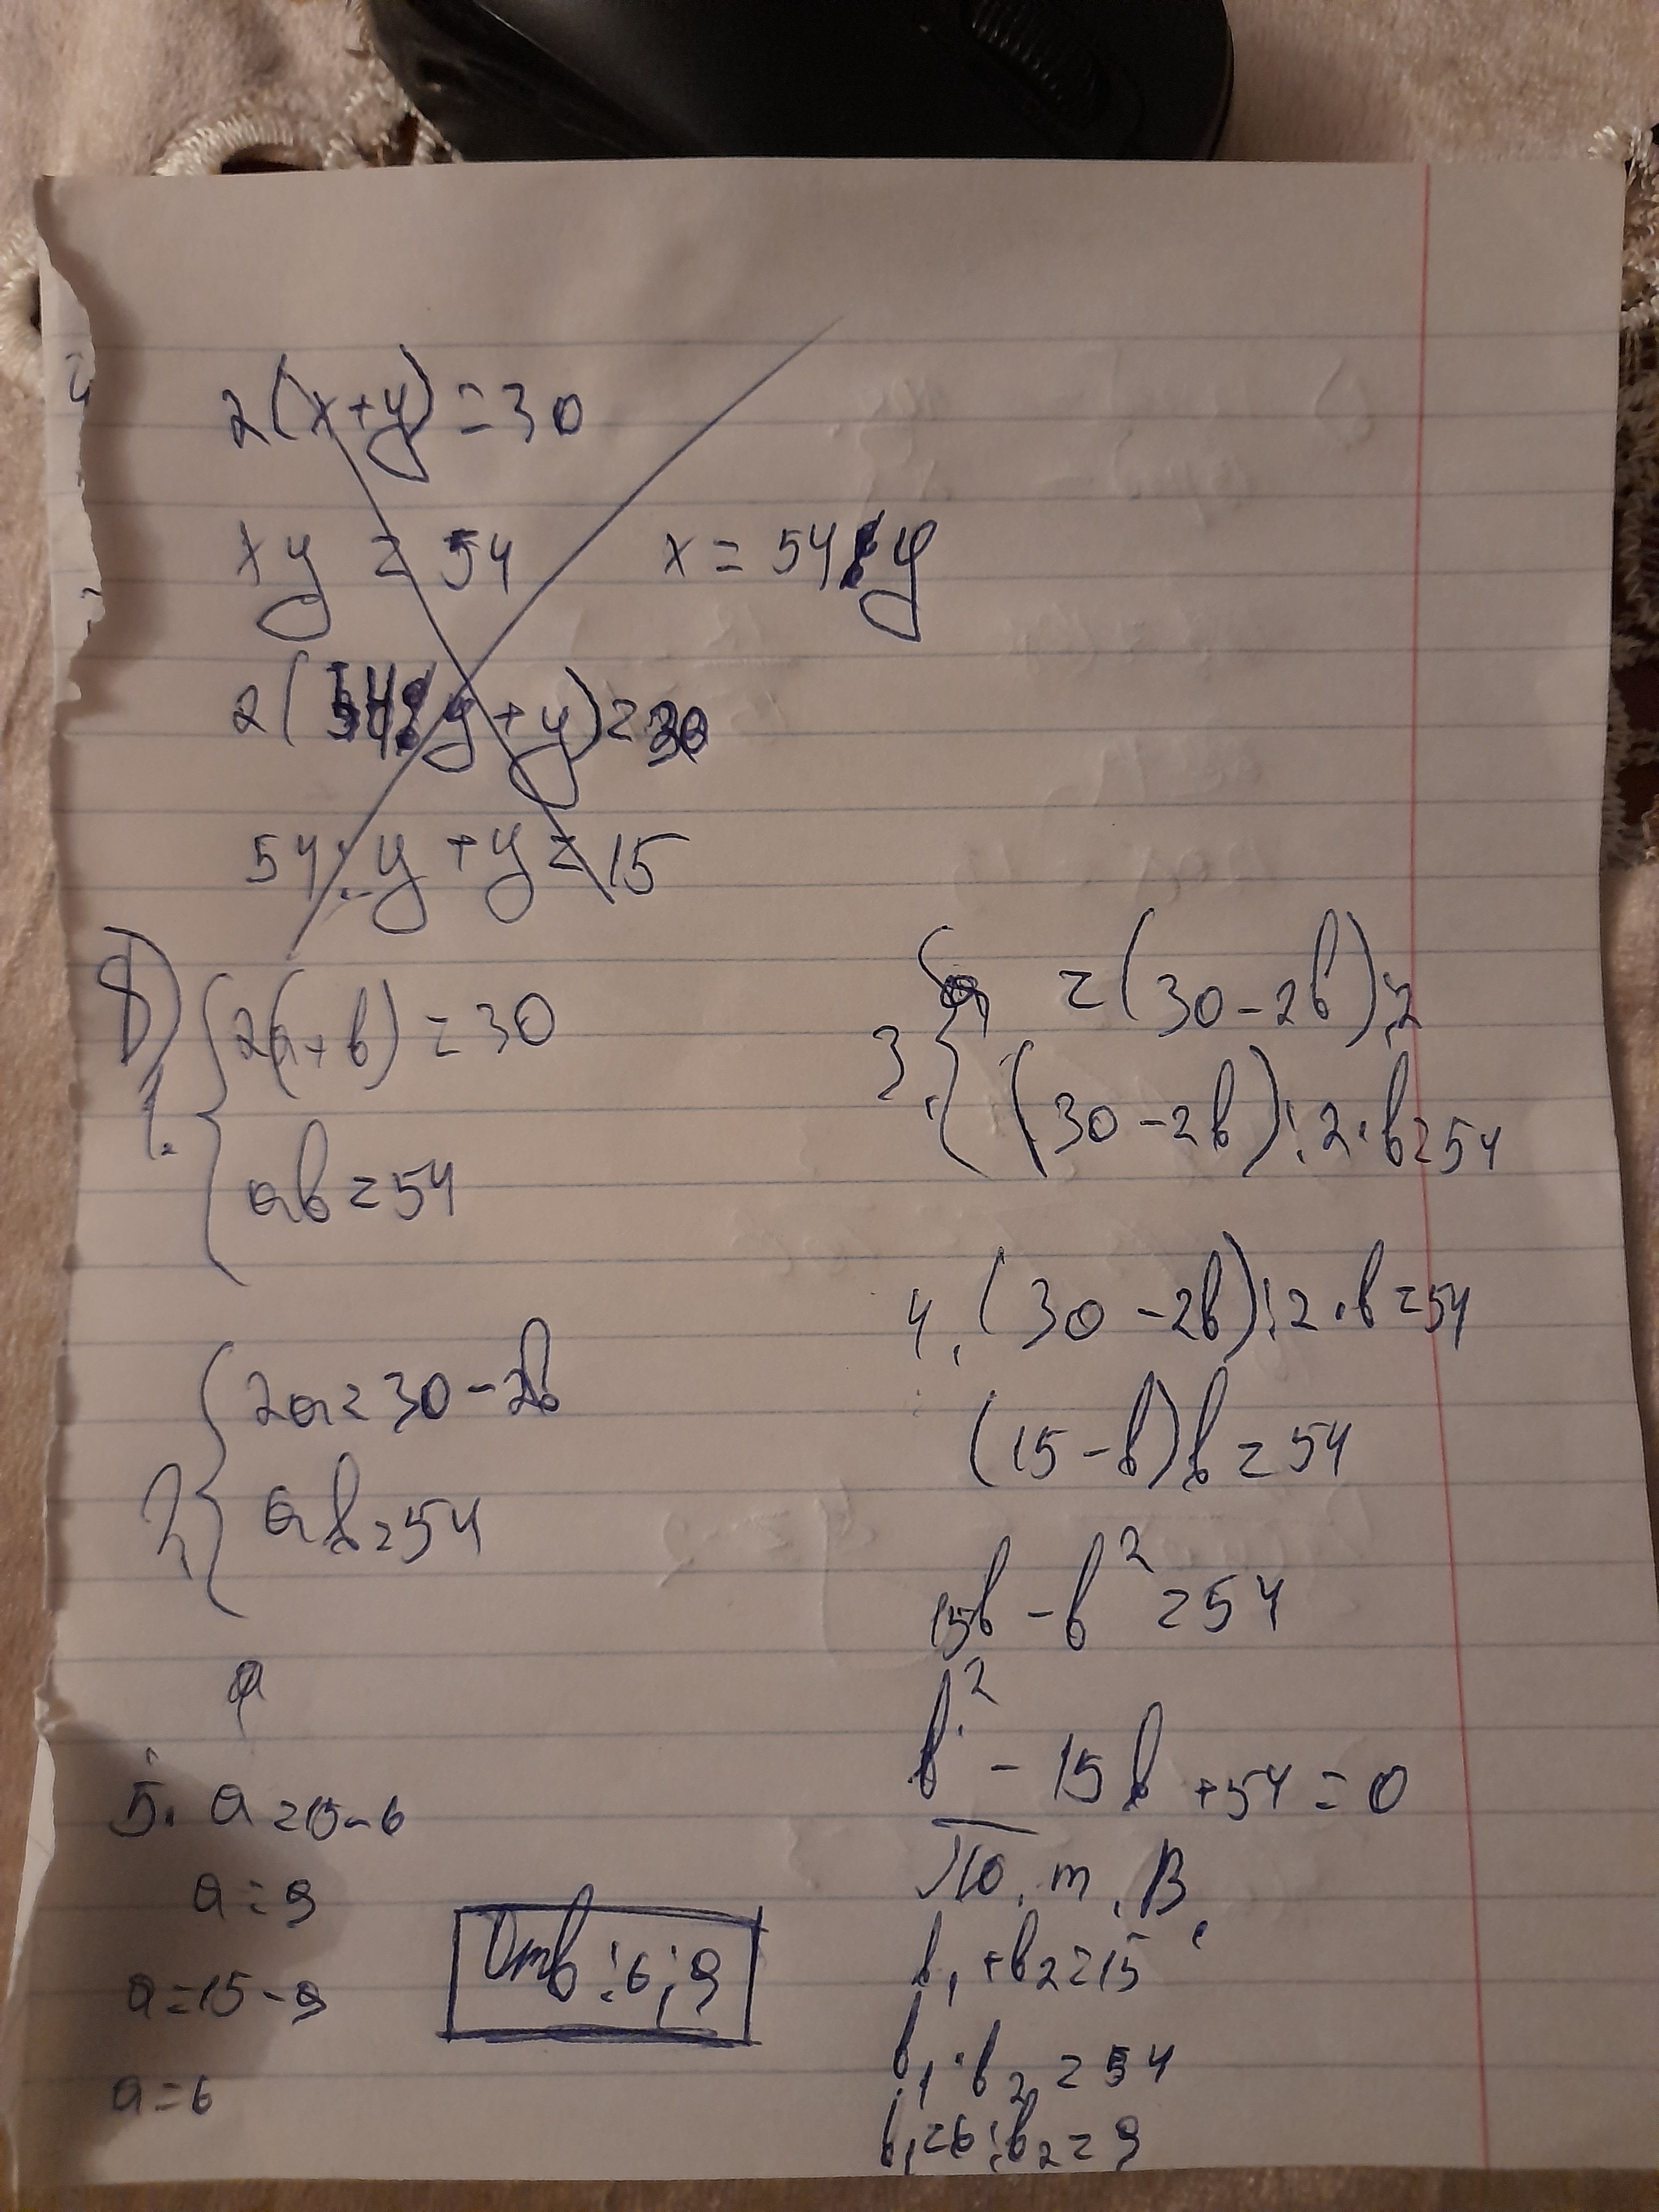 2(x+y)=30
xy = 54 x = 54:y
2(54:y+y)=30
54:y+y=15
8)
1. {2(a+b)=30
ab=54
2 {2a=30-2b
ab=54
3. {a =(30-2b):2
(30-2b):2·b=54
4. (30-2b):2·b=54
(15-b)b=54
15b-b²=54
b²-15b+54=0
По т. В.
b₁+b₂=15
b₁·b₂=54
b₁=6;b₂=9
a
5. a=15-6
a=9
a=15-9
a=6
Отв:6;9